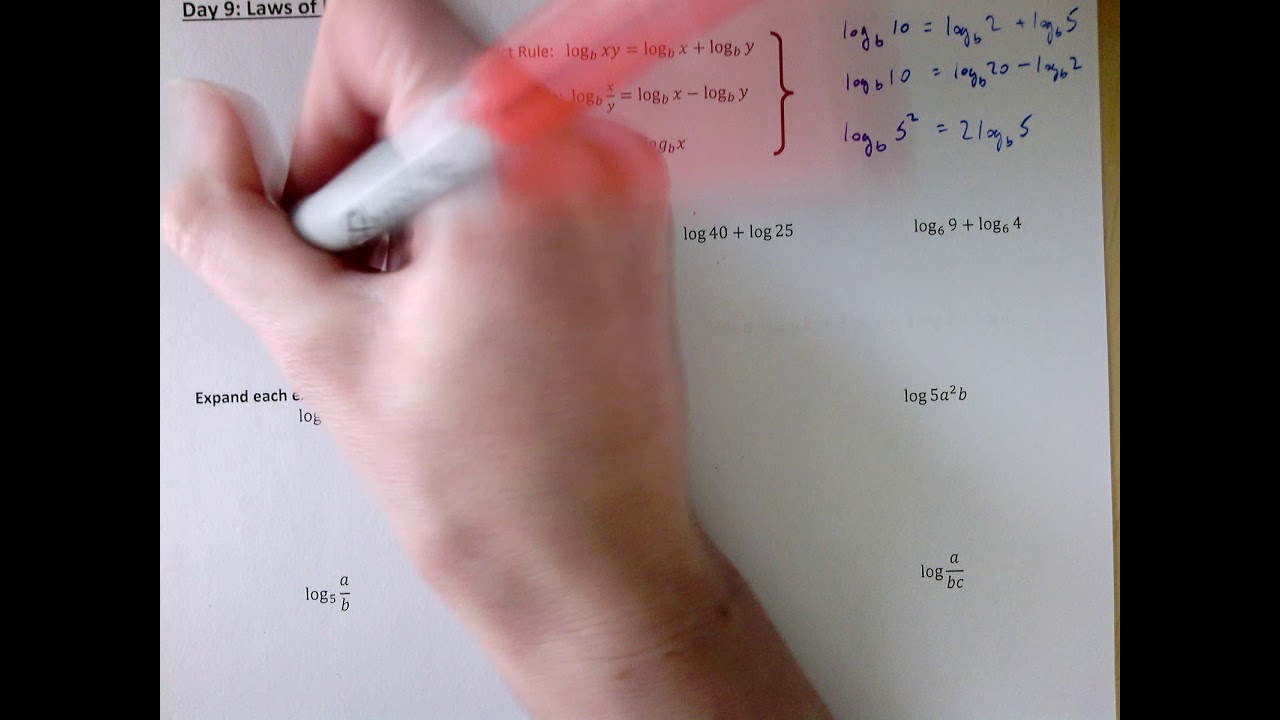 Day 9: Laws of
Rule: log_b xy = log_b x + log_b y
log_b x/y = log_b x − log_b y
log_b x
log_b 10 = log_b 2 + log_b 5
log_b 10 = log_b 20 − log_b 2
log_b 5² = 2 log_b 5
log 40 + log 25
log₆ 9 + log₆ 4
Expand each
log
log 5a²b
log₅ a/b
log a/bc